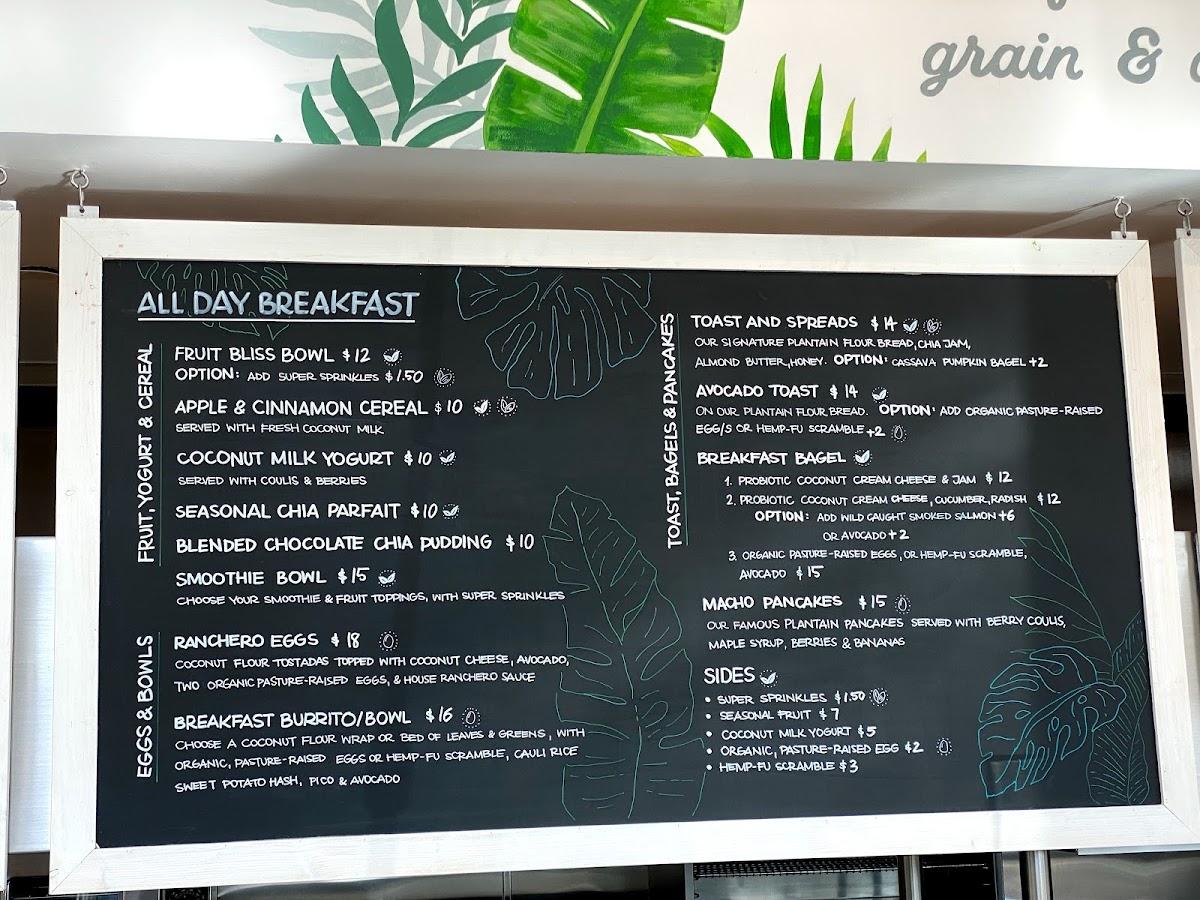 grain &
ALL DAY BREAKFAST
FRUIT, YOGURT & CEREAL
FRUIT BLISS BOWL $12
OPTION: ADD SUPER SPRINKLES $1.50
APPLE & CINNAMON CEREAL $10
SERVED WITH FRESH COCONUT MILK
COCONUT MILK YOGURT $10
SERVED WITH COULIS & BERRIES
SEASONAL CHIA PARFAIT $10
BLENDED CHOCOLATE CHIA PUDDING $10
SMOOTHIE BOWL $15
CHOOSE YOUR SMOOTHIE & FRUIT TOPPINGS, WITH SUPER SPRINKLES
EGGS & BOWLS
RANCHERO EGGS $18
COCONUT FLOUR TOSTADAS TOPPED WITH COCONUT CHEESE, AVOCADO,
TWO ORGANIC PASTURE-RAISED EGGS, & HOUSE RANCHERO SAUCE
BREAKFAST BURRITO/BOWL $16
CHOOSE A COCONUT FLOUR WRAP OR BED OF LEAVES & GREENS, WITH
ORGANIC, PASTURE-RAISED EGGS OR HEMP-FU SCRAMBLE, CAULI RICE
SWEET POTATO HASH, PICO & AVOCADO
TOAST, BAGELS & PANCAKES
TOAST AND SPREADS $14
OUR SIGNATURE PLANTAIN FLOUR BREAD, CHIA JAM,
ALMOND BUTTER, HONEY. OPTION: CASSAVA PUMPKIN BAGEL +2
AVOCADO TOAST $14
ON OUR PLANTAIN FLOUR BREAD. OPTION: ADD ORGANIC PASTURE-RAISED
EGG/S OR HEMP-FU SCRAMBLE +2
BREAKFAST BAGEL
1. PROBIOTIC COCONUT CREAM CHEESE & JAM $12
2. PROBIOTIC COCONUT CREAM CHEESE, CUCUMBER, RADISH $12
OPTION: ADD WILD CAUGHT SMOKED SALMON +6
OR AVOCADO +2
3. ORGANIC PASTURE-RAISED EGGS, OR HEMP-FU SCRAMBLE,
AVOCADO $15
MACHO PANCAKES $15
OUR FAMOUS PLANTAIN PANCAKES SERVED WITH BERRY COULIS,
MAPLE SYRUP, BERRIES & BANANAS
SIDES
• SUPER SPRINKLES $1.50
• SEASONAL FRUIT $7
• COCONUT MILK YOGURT $5
• ORGANIC, PASTURE-RAISED EGG $2
• HEMP-FU SCRAMBLE $3